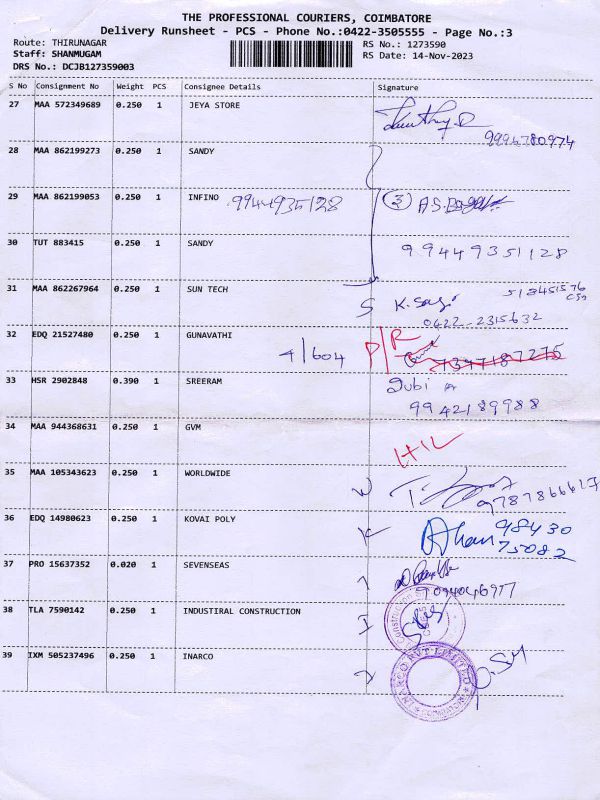 THE PROFESSIONAL COURIERS, COIMBATORE
Delivery Runsheet - PCS - Phone No.:0422-3505555 - Page No.:3
Route: THIRUNAGAR RS No.: 1273590
Staff: SHANMUGAM RS Date: 14-Nov-2023
DRS No.: DCJB127359003
S No Consignment No Weight PCS Consignee Details Signature
27 MAA 572349689 0.250 1 JEYA STORE
9996780974
28 MAA 862199273 0.250 1 SANDY
29 MAA 862199053 0.250 1 INFINO 9944935128 3
30 TUT 883415 0.250 1 SANDY 99449351128
31 MAA 862267964 0.250 1 SUN TECH S
0422-2315632
32 EDQ 21527480 0.250 1 GUNAVATHI 4/604 P/R
33 HSR 2902848 0.390 1 SREERAM
9942189988
34 MAA 944368631 0.250 1 GVM
35 MAA 105343623 0.250 1 WORLDWIDE W
9787866617
36 EDQ 14980623 0.250 1 KOVAI POLY K 98430
75082
37 PRO 15637352 0.020 1 SEVENSEAS
38 TLA 7590142 0.250 1 INDUSTIRAL CONSTRUCTION I
39 IXM 505237496 0.250 1 INARCO
INARCO PVT LIMITED